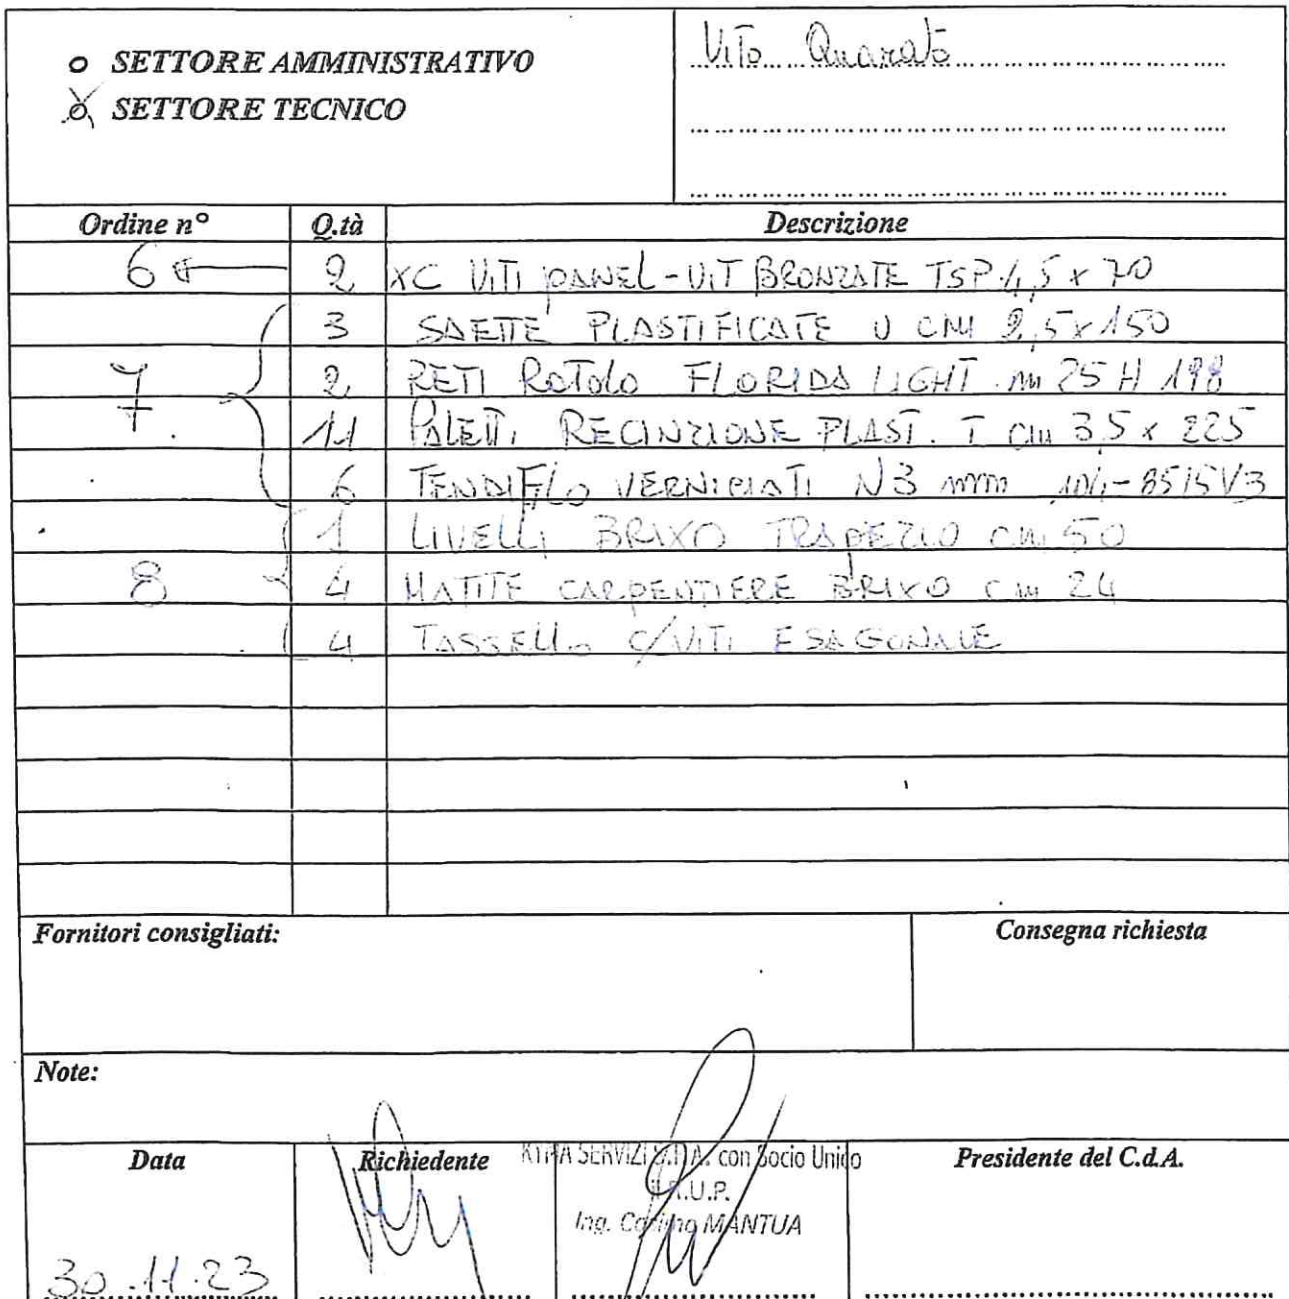 o SETTORE AMMINISTRATIVO
o SETTORE TECNICO
Vito Quarato
Ordine n° Q.tà Descrizione
6 2 XC VITI PANEL-VIT BRONZATE TSP 4,5 x 70
3 SAETTE PLASTIFICATE U CM 2,5x150
7 2 RETI ROTOLO FLORIDA LIGHT m 25 H 198
11 PALETTI RECINZIONE PLAST. T cm 3,5 x 225
6 TENDIFILO VERNICIATI N3 mm 8515V3
1 LIVELLI BRIXO TRAPEZIO cm 50
8 4 MATITE CARPENTIERE BRIXO cm 24
4 TASSELLO C/VITI ESAGONALE
Fornitori consigliati: Consegna richiesta
Note:
Data Richiedente KYMA SERVIZI S.P.A. con Socio Unico Presidente del C.d.A.
R.U.P.
Ing. Cosimo MANTUA
30.11.23